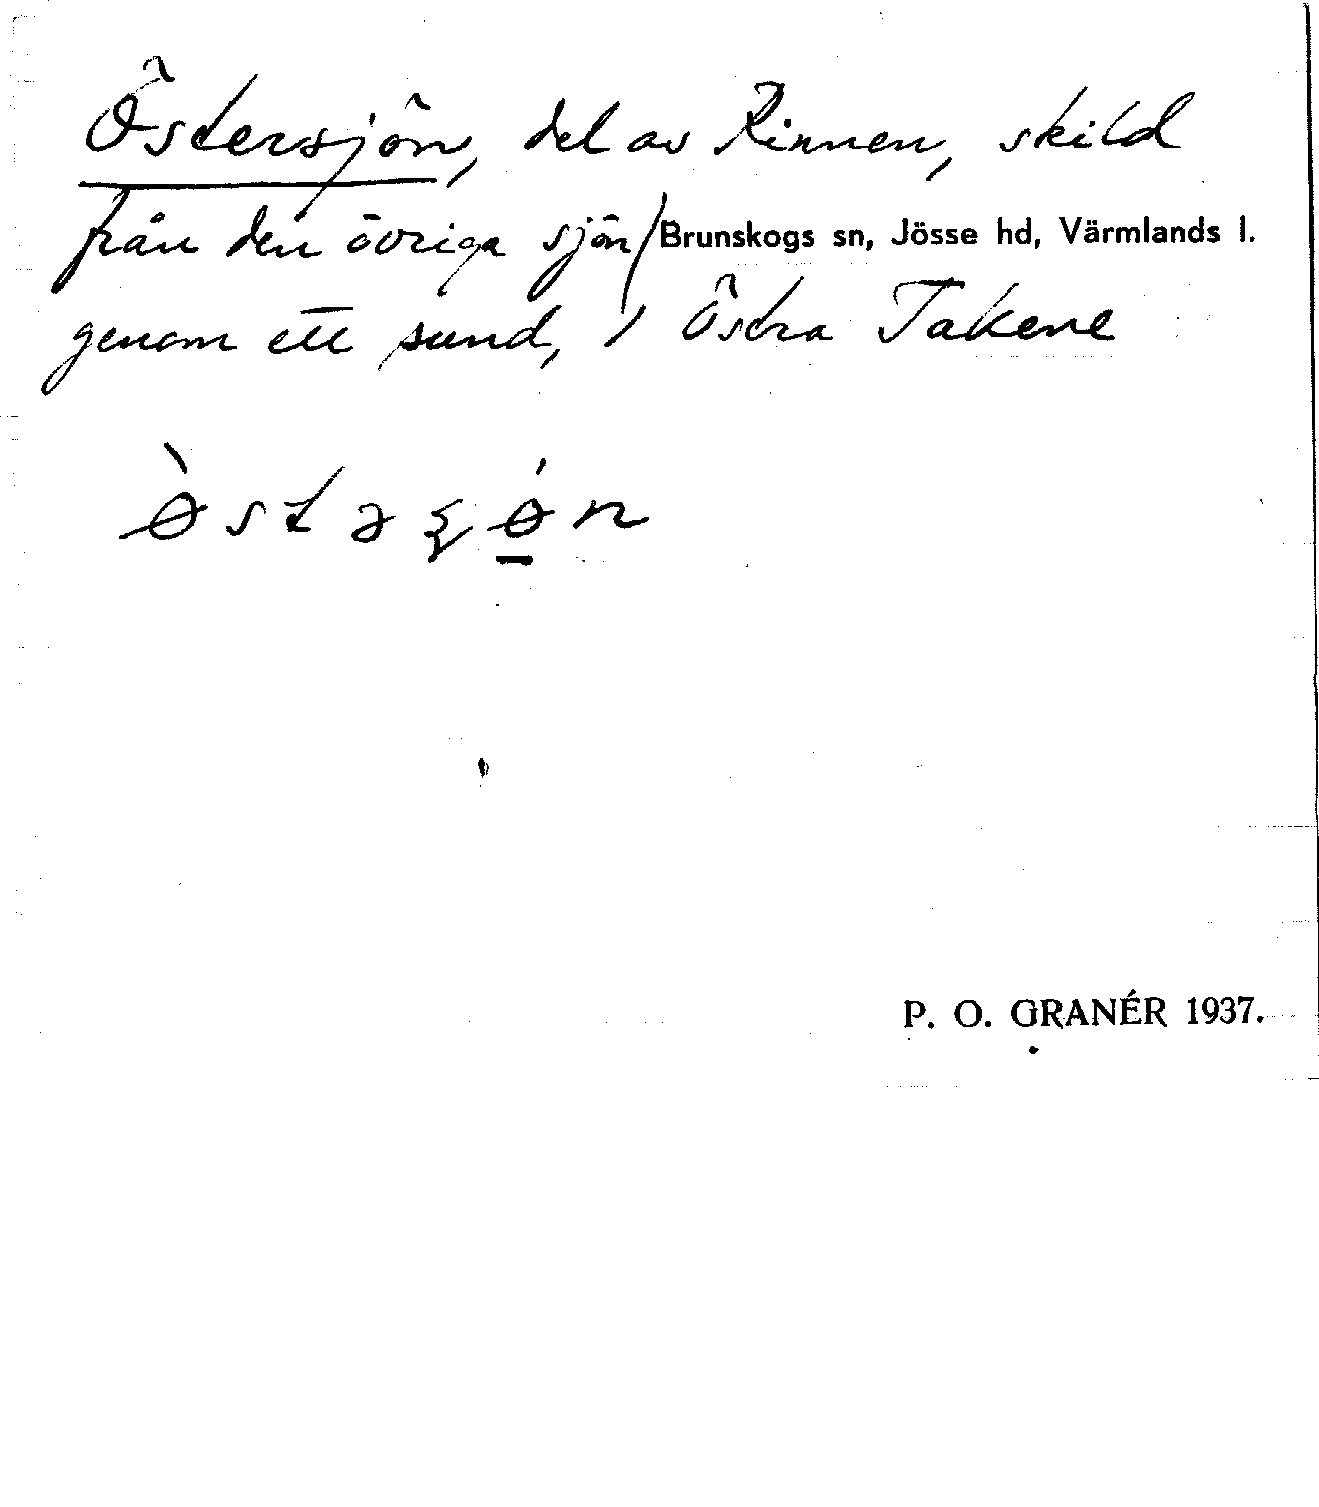 Östersjön, del av Rinnen, skild
från den övriga sjön/Brunskogs sn, Jösse hd, Värmlands l.
genom ett sund, i Östra Takene
ø̀stəʂǿ̲n
P. O. GRANÉR 1937.